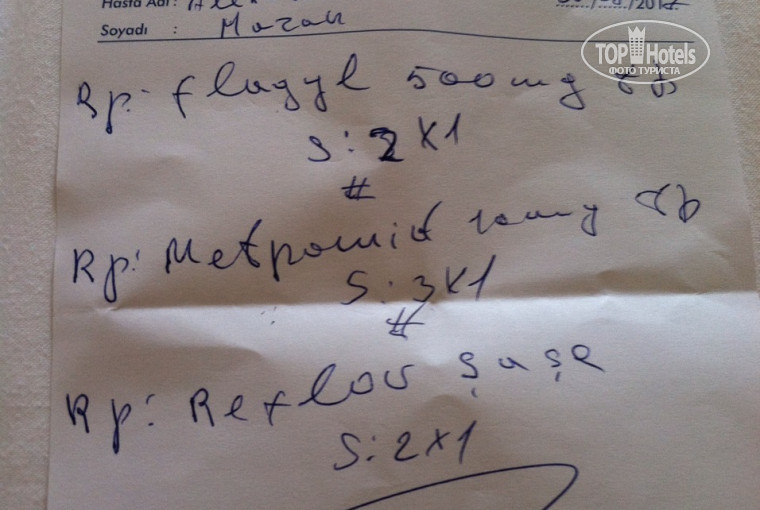 Hasta Adı :
Soyadı :
TOP Hotels
ФОТО ТУРИСТА
Rp: flagyl 500mg tb
S: 2x1
#
Rp: Metpamid 10mg tb
S: 3x1
#
Rp: Reflor şaşe
S: 2x1